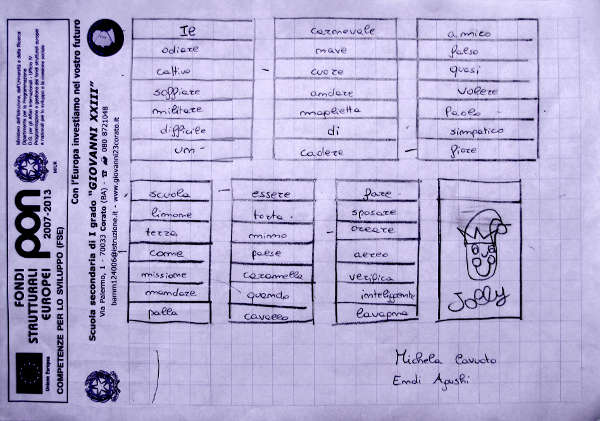 FONDI
STRUTTURALI
EUROPEI
pon
2007-2013
COMPETENZE PER LO SVILUPPO (FSE)
Unione Europea
MIUR
Con l'Europa investiamo nel vostro futuro
Scuola secondaria di I grado "GIOVANNI XXIII"
Via Palermo, 1 - 70033 Corato (BA) - ☎ 080 8721048
bamm124006@istruzione.it - www.giovanni23corato.it
Ie
odiare
cattivo
soffiare
militare
difficile
um
carnevale
nave
cuore
andare
maglietta
di
cadere
amico
falso
quasi
volere
Paolo
simpatico
fiore
scuola
limone
terza
come
missione
mandare
palla
essere
torta
nonno
paese
caramella
quando
cavallo
fare
sposare
creare
aereo
verifica
intelligente
lavagna
Jolly
Michela Cavuoto
Emdi Agushi